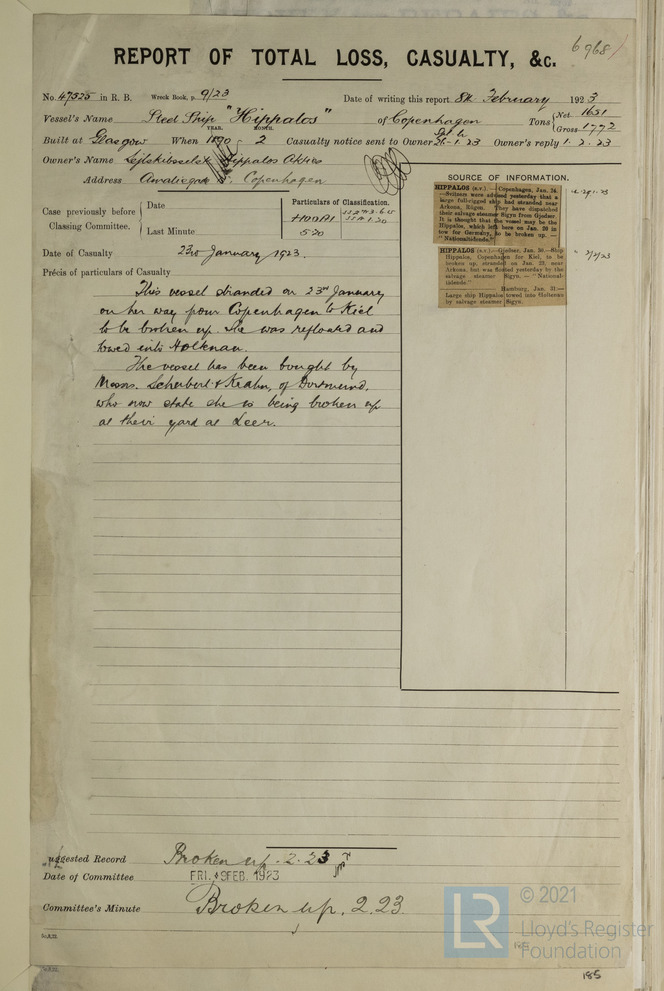 6968/
REPORT OF TOTAL LOSS, CASUALTY, &c.
No. 47525 in R. B. Wreck Book, p. 9/23 Date of writing this report 8th February 1923
Vessel's Name Steel Ship "Hippalos" of Copenhagen Tons Net 1651 Gross 1772
Built at Glasgow When YEAR. 1890 MONTH. 2 Casualty notice sent to Owner 1.23 Owner's reply 1.2.23
Owner's Name Hippalos
Address Copenhagen
Case previously before Classing Committee. Date Last Minute
Particulars of Classification.
+100A1
5.20
Date of Casualty 23rd January, 1923.
Précis of particulars of Casualty
This vessel stranded on 23rd January
on her way from Copenhagen to Kiel
to be broken up. She was refloated and
towed into Holtenau.
The vessel has been bought by
Messrs. Scherbert & Krahn, of Dortmund,
who now state she is being broken up
at their yard at Leer.
SOURCE OF INFORMATION.
HIPPALOS (s.v.).—Copenhagen, Jan. 24.
—Svitzers were advised yesterday that a
large full-rigged ship had stranded near
Arkona, Rügen. They have dispatched
their salvage steamer Sigyn from Gjedser.
It is thought that the vessel may be the
Hippalos, which left here on Jan. 20 in
tow for Germany, to be broken up.—
"Nationaltidende."
HIPPALOS (s.v.).—Gjedser, Jan. 30.—Ship
Hippalos, Copenhagen for Kiel, to be
broken up, stranded on Jan. 23, near
Arkona, but was floated yesterday by the
salvage steamer Sigyn.—"National-
tidende."
Hamburg, Jan. 31.—
Large ship Hippalos towed into Holtenau
by salvage steamer Sigyn.
Suggested Record Broken up. 2.23
Date of Committee FRI. 9 FEB. 1923
Committee's Minute Broken up. 2.23.
© 2021
LR
Lloyd's Register
Foundation
185
185